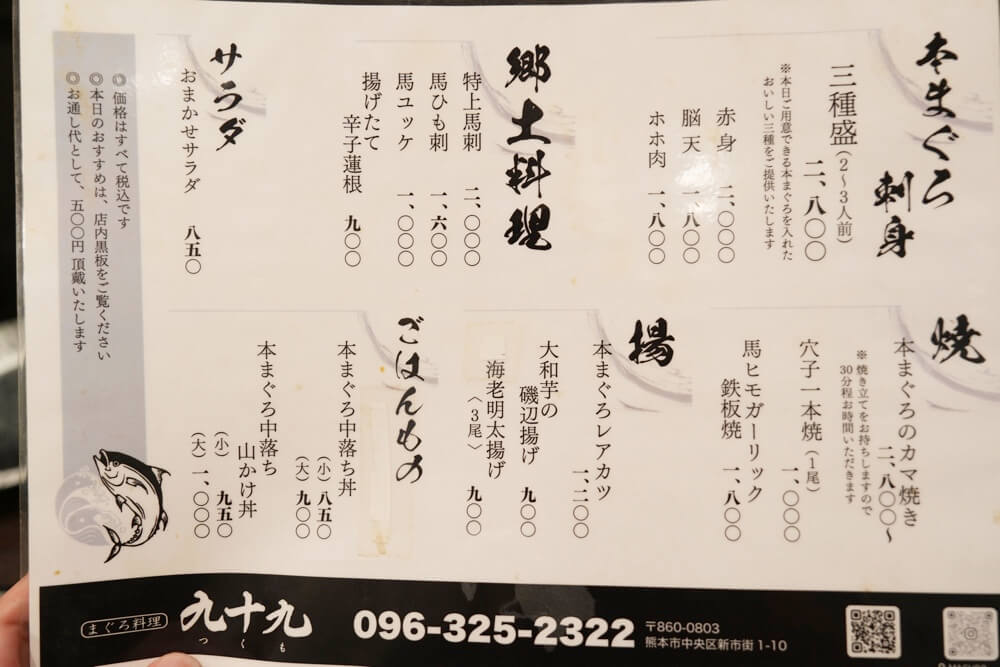 本まぐろ
刺身
三種盛（2～3人前）
二、八〇〇
※本日ご用意できる本まぐろを入れた
おいしい三種をご提供いたします
赤身　二、〇〇〇
脳天　一、八〇〇
ホホ肉　一、八〇〇
郷土料理
特上馬刺　二、〇〇〇
馬ひも刺　一、六〇〇
馬ユッケ　一、〇〇〇
揚げたて
辛子蓮根　九〇〇
サラダ
おまかせサラダ　八五〇
◎価格はすべて税込です
◎本日のおすすめは、店内黒板をご覧ください
◎お通し代として、五〇〇円頂戴いたします
焼
本まぐろのカマ焼き
二、八〇〇～
※焼き立てをお持ちしますので
30分程お時間いただきます
穴子一本焼（1尾）
一、〇〇〇
馬ヒモガーリック
鉄板焼　一、八〇〇
揚
本まぐろレアカツ
一、二〇〇
大和芋の
磯辺揚げ　九〇〇
海老明太揚げ
〈3尾〉　九〇〇
ごはんもの
本まぐろ中落ち丼
（小）八五〇
（大）九〇〇
本まぐろ中落ち
山かけ丼
（小）九五〇
（大）一、〇〇〇
まぐろ料理
九十九
つくも
096-325-2322
〒860-0803
熊本市中央区新市街1-10